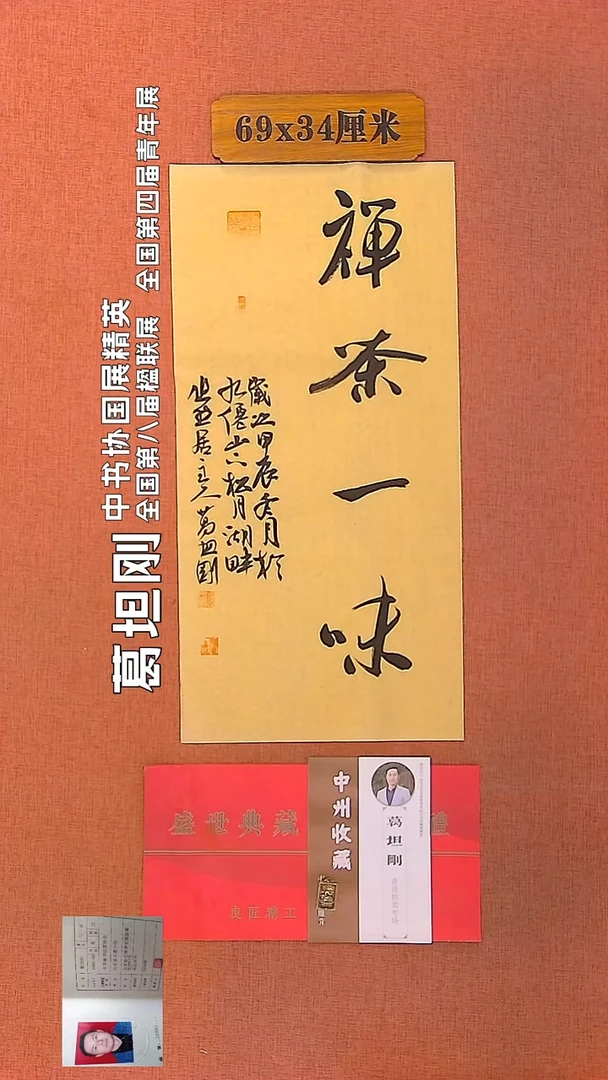 69x34厘米
禅茶一味
歲次甲辰冬月於
九僊山下松月湖畔
葛坦剛
中书协国展精英
全国第八届楹联展 全国第四届青年展
葛坦刚
盛世典藏
良匠精工
中州收藏
葛坦剛